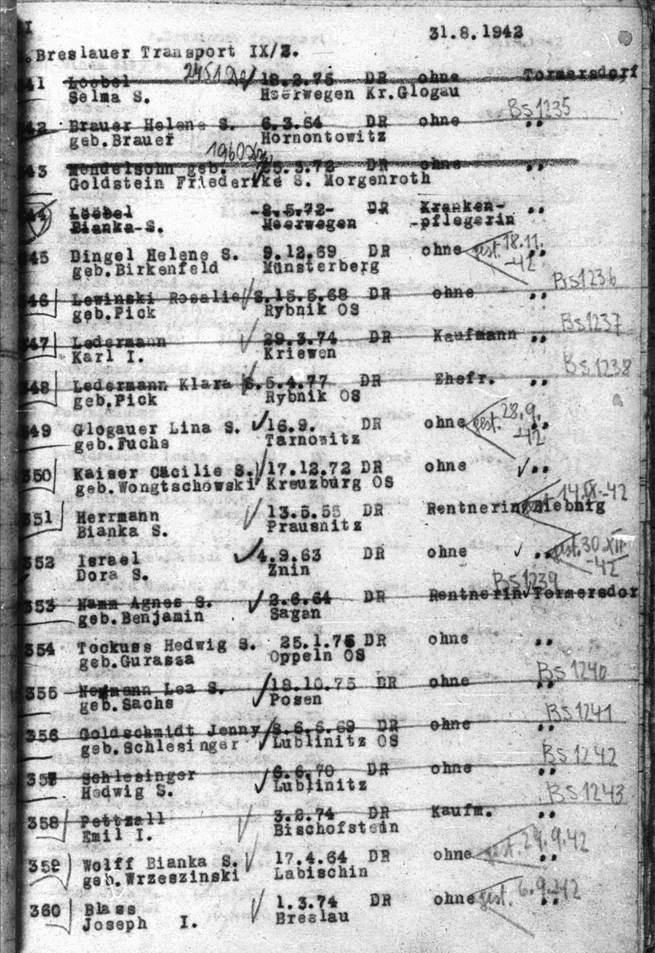 I 31.8.1942
Breslauer Transport IX/2.
41 Loebel 2451 18.2.75 DR ohne Tormersdorf
Selma S. Heerwegen Kr.Glogau
Bs 1235
42 Brauer Helene S. 6.3.64 DR ohne "
geb.Brauer Hornontowitz
1960
43 Mendelsohn geb. 25.3.72 DR ohne "
Goldstein Friederike S. Morgenroth
44 Loebel 2.5.72 DR Kranken- "
Bianka S. Heerwegen pflegerin
345 Dingel Helene S. 9.12.69 DR ohne gest. 18.11. "
geb.Birkenfeld Münsterberg -42
Bs 1236
46 Lewinski Rosalie S. 15.5.68 DR ohne "
geb.Pick Rybnik OS
Bs 1237
347 Ledermann 29.3.74 DR Kaufmann "
Karl I. Kriewen
Bs 1238
348 Ledermann Klara S. 5.4.77 DR Ehefr. "
geb.Pick Rybnik OS
349 Glogauer Lina S. 16.9. DR ohne gest. 28.9. "
geb.Fuchs Tarnowitz -42
350 Kaiser Cäcilie S. 17.12.72 DR ohne "
geb.Wongtschowski Kreuzburg OS
351 Herrmann 13.5.55 DR Rentnerin Ziebnig gest. 14.IX.-42
Bianka S. Prausnitz
352 Israel 4.9.63 DR ohne " gest. 30.XII
Dora S. Znin -42
Bs 1239
353 Hamm Agnes S. 2.6.64 DR Rentnerin Tormersdor
geb.Benjamin Sagan
354 Tockuss Hedwig S. 25.1.75 DR ohne "
geb.Gurassa Oppeln OS
Bs 1240
355 Neumann Lea S. 18.10.75 DR ohne "
geb.Sachs Posen
Bs 1241
356 Goldschmidt Jenny S. 6.6.69 DR ohne "
geb.Schlesinger Lublinitz OS
Bs 1242
357 Schlesinger 6.6.70 DR ohne "
Hedwig S. Lublinitz
Bs 1243
358 Pettzall 3.2.74 DR Kaufm. "
Emil I. Bischofstein
359 Wolff Bianka S. 17.4.64 DR ohne gest. 29.9.42 "
geb.Wrzeszinski Labischin
360 Blass 1.3.74 DR ohne gest. 6.9.-42 "
Joseph I. Breslau